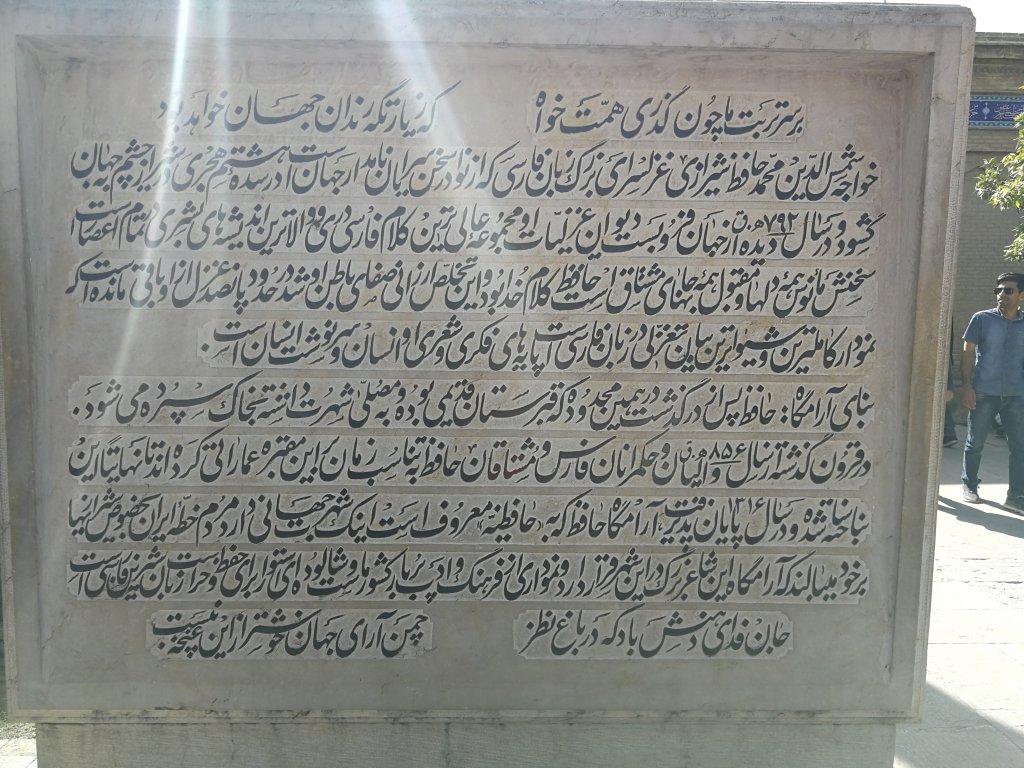 بر سر تربت ما چون گذری همت خواه که زیارتگه رندان جهان خواهد بود
خواجه شمس الدین محمد حافظ شیرازی غزلسرای بزرگ زبان فارسی که از نوادر سخن سرایان نامدار جهان است در سده هشتم هجری در شیراز چشم بجهان
گشود و در سال ۷۹۲ ه.ق دیده از جهان فرو بست دیوان غزلیات او مجموعه عالی ترین کلام فارسی دری و والاترین اندیشه های بشری در تمام اعصار است
سخنش مانوس همه دلها و مقبول همه جانهای مشتاق است حافظ کلام خدا بود و این تخلص ارزانی صفای باطن او شد در حدود پانصد غزل از او باقی مانده است که
نمودار کاملترین و شیواترین بیان تغزلی در زبان فارسی است پایه های فکری و شعری او انسان و سرنوشت انسان است.
بنای آرامگاه: حافظ پس از درگذشت در همین محدوده که قبرستان قدیمی بوده و به مصلی شهرت داشته بخاک سپرده می شود.
در قرون گذشته از سال ۸۵۶ و حکمرانان فارس و مشتاقان حافظ به تناسب زمان بر این مقبره عماراتی کرده اند تا نهایتا این
بنا ساخته شده و در سال ۱۳۱۶ پایان پذیرفت. آرامگاه حافظ که به «حافظیه» معروف است اینک شهرت جهانی دارد مردم خطه ایران بخصوص شیرازیها
بر خود میبالند که آرامگاه این شاعر بزرگ در این شهر قرار دارد و نموداری از فرهنگ و ادب پربار کشور ماست و شالوده ای استوار برای حفظ و حراست زبان شیرین فارسی است
جان فدای دهنش باد که در باغ نظر چمن آرای جهان خوشتر از این غنچه نبست